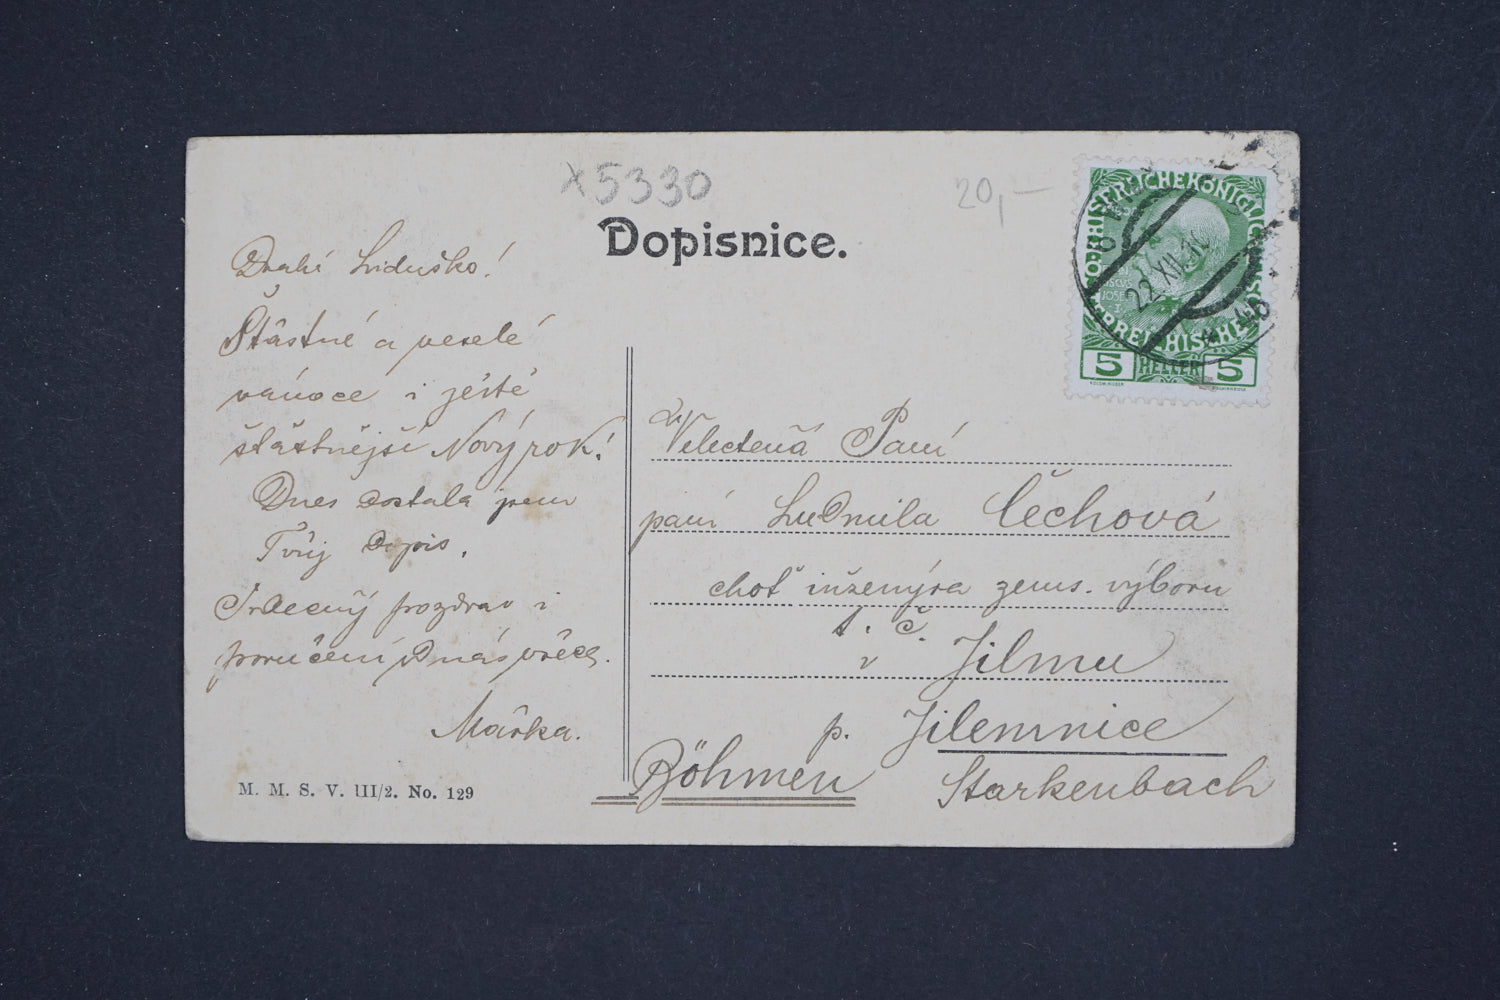 x 5330
20,—
Dopisnice.
Drahá Liduško!
Šťastné a veselé
vánoce i ještě
šťastnější Nový rok!
Dnes dostala jsem
Tvůj dopis.
Srdečný pozdrav i
poručení od nás všech.
Mařka.
M. M. S. V. III/2. No. 129
22.XII.10
5 HELLER 5
Velectená Paní
paní Ludmila Čechová
choť inženýra zems. výboru
t. č.
v Jilmu
p. Jilemnice
Böhmen Starkenbach